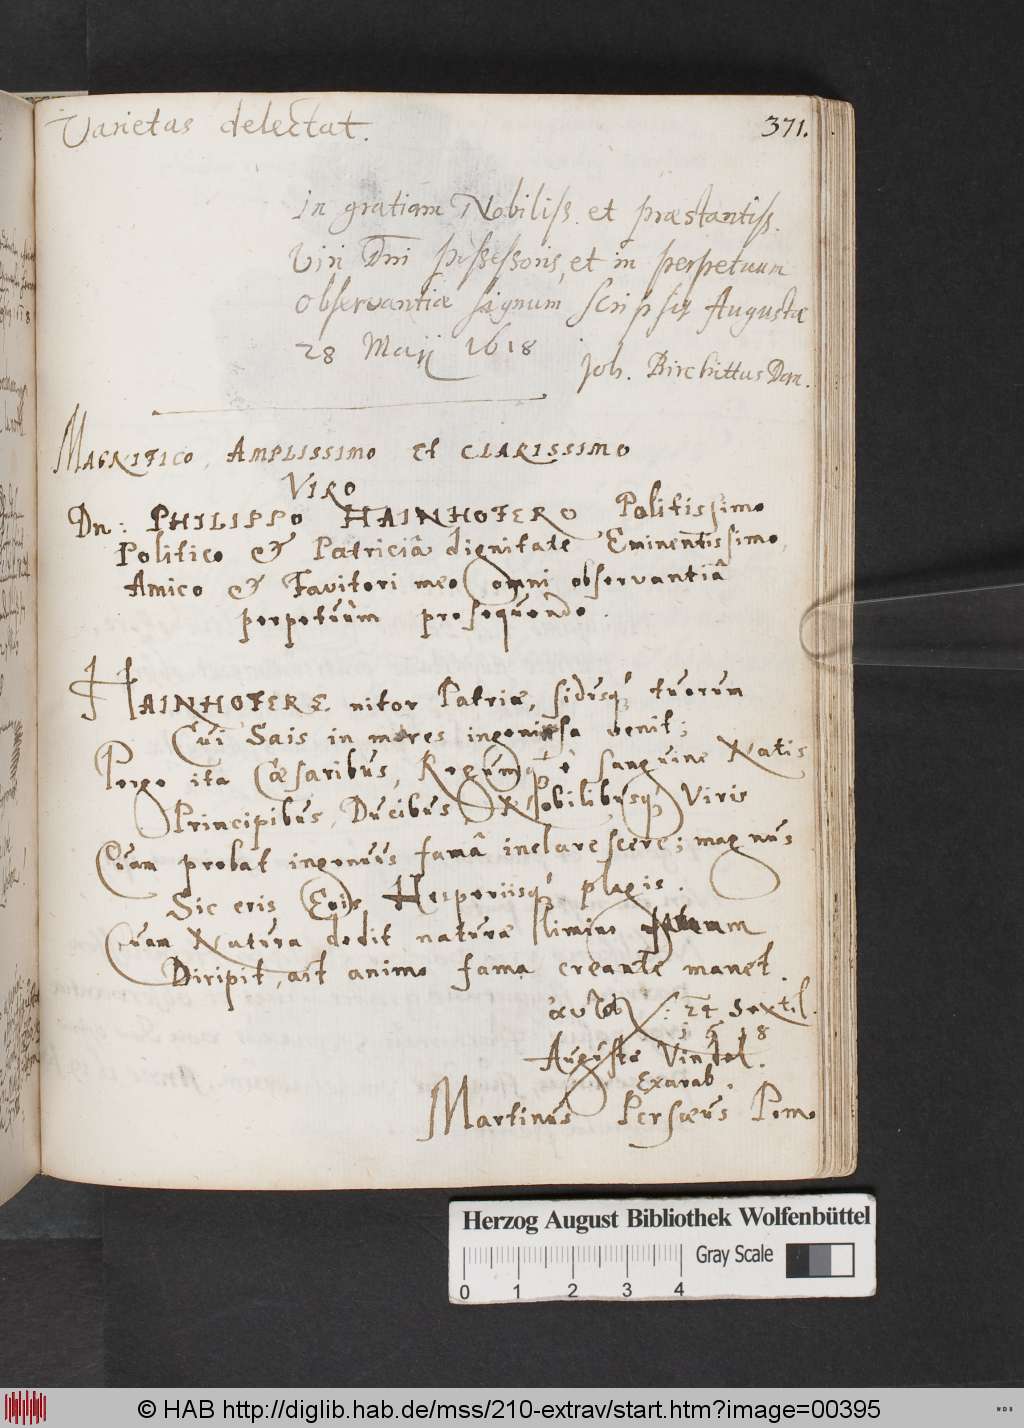 Varietas delectat.
371.
In gratiam Nobiliss. et præstantiss.
Viri Dni possessoris, et in perpetuum
observantiæ signum scripsit Augustæ
28 Maij 1618
Joh. Birchittus Dan.
MAGNIFICO, AMPLISSIMO et CLARISSIMO
VIRO
Dn: PHILIPPO HAINHOFERO Politissimo
Politico & Patriciâ dignitate Eminentissimo,
Amico & Favitori meo omni observantiâ
perpetuùm prosequendo.
HAINHOFERE nitor Patriæ, sidusq; tuorum
Cui Sais in mores ingeniosa venit;
Perge ita Cæsaribus, Regumq; è sanguine Natis
Principibus, Ducibus, Nobilibusq; Viris
Quam probat ingenuis famâ inclarescere; magnus
Sic eris Eois Hesperiisq; plagis.
Quam Natura dedit naturæ limine
Diripit, ast animo fama creante manet.
24 Sextil.
1 6 1 8
Augustæ Vindel.
Exarab.
Martinus Persæus Pom.
Herzog August Bibliothek Wolfenbüttel
Gray Scale
0 1 2 3 4
© HAB http://diglib.hab.de/mss/210-extrav/start.htm?image=00395